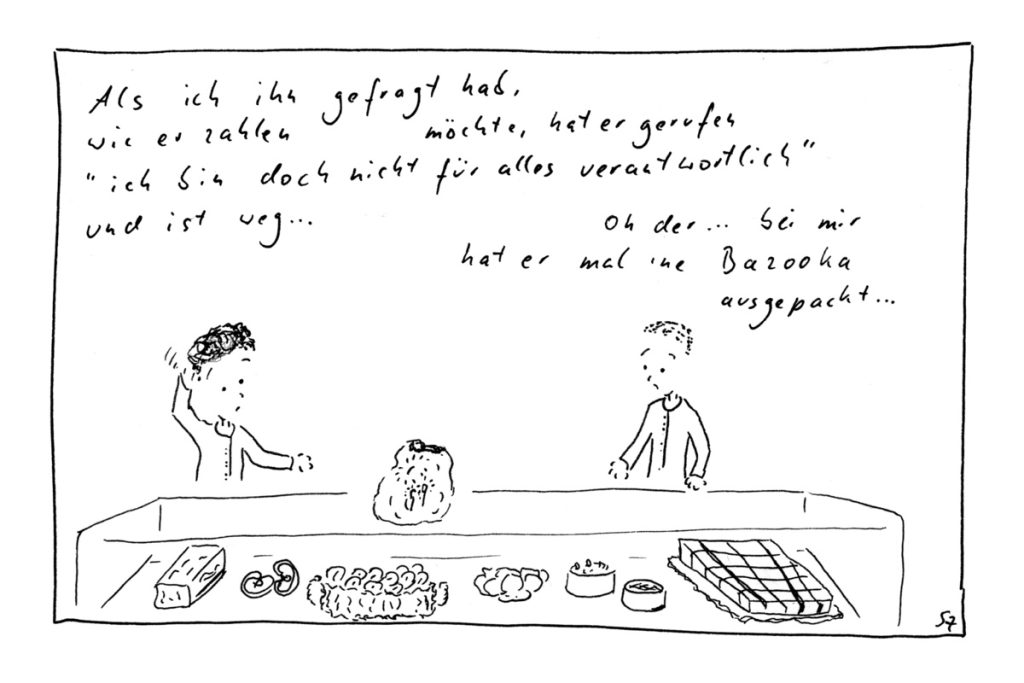 Als ich ihn gefragt hab,
wie er zahlen möchte, hat er gerufen
"ich bin doch nicht für alles verantwortlich"
und ist weg...
Oh der... bei mir
hat er mal 'ne Bazooka
ausgepackt...
SZ